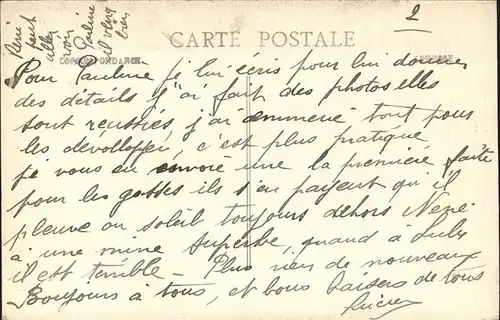 René
peut
aller
voir
Pauline
il vous
bien
2
CARTE POSTALE
CORRESPONDANCE
ADRESSE
Pour Pauline je lui écris pour lui donner
des détails j'ai fait des photos elles
sont reussies, j'ai emmené tout pour
les devollopper, c'est plus pratique
je vous en envoie une la première faite
pour les gosses ils s'en payent qu'il
pleuve ou soleil toujours dehors Néné
a une mine superbe, quand à Lulu
il est terrible – Plus rien de nouveaux
Bonjours à tous, et bons baisers de tous